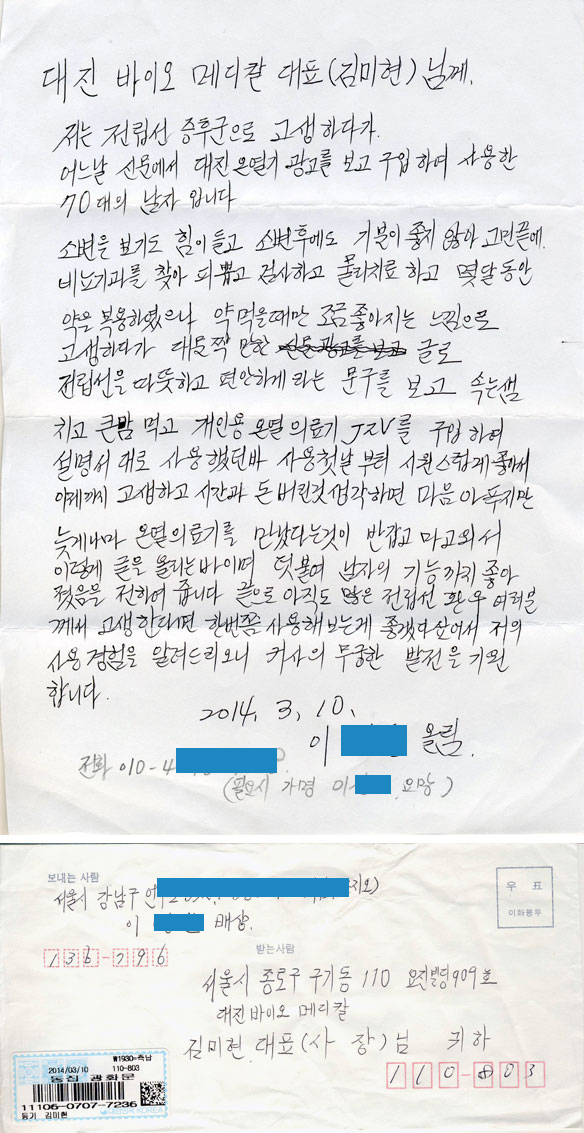 대진 바이오 메디칼 대표(김미현)님께.
저는 전립선 증후군으로 고생하다가.
어느날 신문에서 대진온열기 광고를 보고 구입하여 사용한
70대의 남자 입니다
소변을 보기도 힘이들고 소변후에도 기분이 좋지 않아 고민끝에.
비뇨기과를 찾아 피뽑고 검사하고 물리치료 하고 몇달동안
약을 복용하였으나 약먹을때만 조금좋아지는 느낌으로
고생하다가 대문짝 만한 신문광고를보고 글로
전립선을 따뜻하고 편안하게 라는 문구를 보고 속는샘
치고 큰맘먹고 개인용온열의료기 JZV를 구입하여
설명서대로 사용했던바 사용첫날부터 시원스럽게 좋아서
이제까지 고생하고 시간과 돈버린것생각하면 마음아푸지만
늦게나마 온열의료기를 만났다는것이 반갑고 마고와서
이렇게 글을 올리는바이며 덧붙여 남자의 기능까지 좋아
졌음을 전하여 줍니다 끝으로 아직도 많은 전립선 환우 여러분
께서 고생한다면 한번쯤 사용해보는게 좋겠다싶어서 저의
사용경험을 알려드리오니 귀사의 무궁한 발전을 기원
합니다.
2014. 3. 10.
이 올림.
전화 010-4
(필요시 가명 이 요망)
보내는 사람
서울시 강남구 언
이 배상.
136-796
우 표
이하봉우
받는사람
서울시 종로구 구기동 110 요진빌딩 909호
대진바이오 메디칼
김미현 대표(사 장)님 귀하
110-803
₩1930=측납
2014/03/10 110-803
통상 광화문
11106-0707-7236
등기 김미현